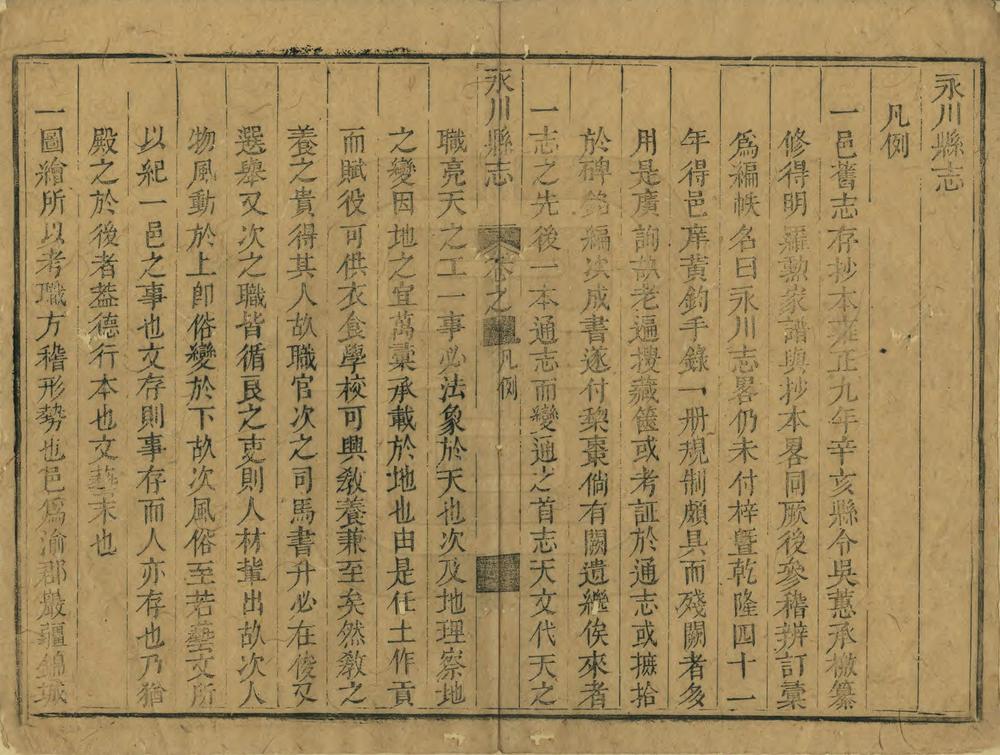 永川縣志
凡例
一邑舊志存抄本雍正九年辛亥縣令吳蕙承檄纂
修得明羅勲家譜與抄本畧同厥後參稽辨訂彙
爲編帙名曰永川志畧仍未付梓曁乾隆四十一
年得邑庠黃鈞手錄一册規制頗具而殘闕者多
用是廣詢故老遍搜藏篋或考証於通志或摭拾
於碑銘編次成書遂付棃棗倘有闕遺繼俟來者
一志之先後一本通志而變通之首志天文代天之
永川縣志
卷之
凡例
職亮天之工一事必法象於天也次及地理察地
之變因地之宜萬彙承載於地也由是任土作貢
而賦役可供衣食學校可興敎養兼至矣然敎之
養之貴得其人故職官次之司馬書升必在俊又
選舉又次之職皆循良之吏則人材輩出故次人
物風動於上卽俗變於下故次風俗至若藝文所
以紀一邑之事也文存則事存而人亦存也乃猶
殿之於後者葢德行本也文藝末也
一圖繪所以考職方稽形勢也邑爲渝郡嚴疆錦城